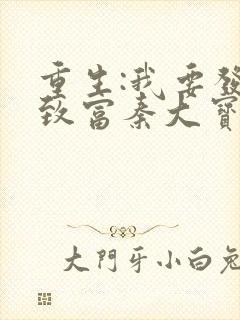 重生:我要發
致富秦大寶
大門牙小白兔